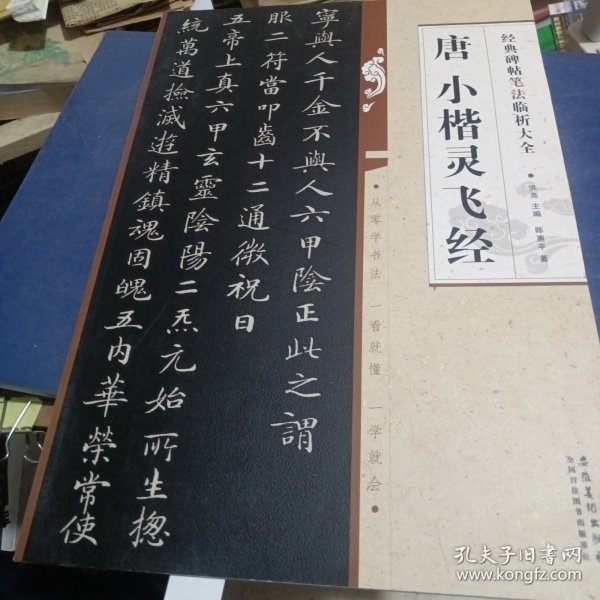 经典碑帖笔法临析大全
唐 小楷灵飞经
洪亮 主编 陈惠平 著
•从零学书法 一看就懂 一学就会•
寧與人千金不與人六甲陰正此之謂
服二符當叩齒十二通微祝曰
五帝上真六甲玄靈陰陽二炁元始所生揔
統萬道撿滅遊精鎮魂固魄五内華榮常使
安徽美术出版社
全国百佳图书出版单位
孔夫子旧书网
www.kongfz.com